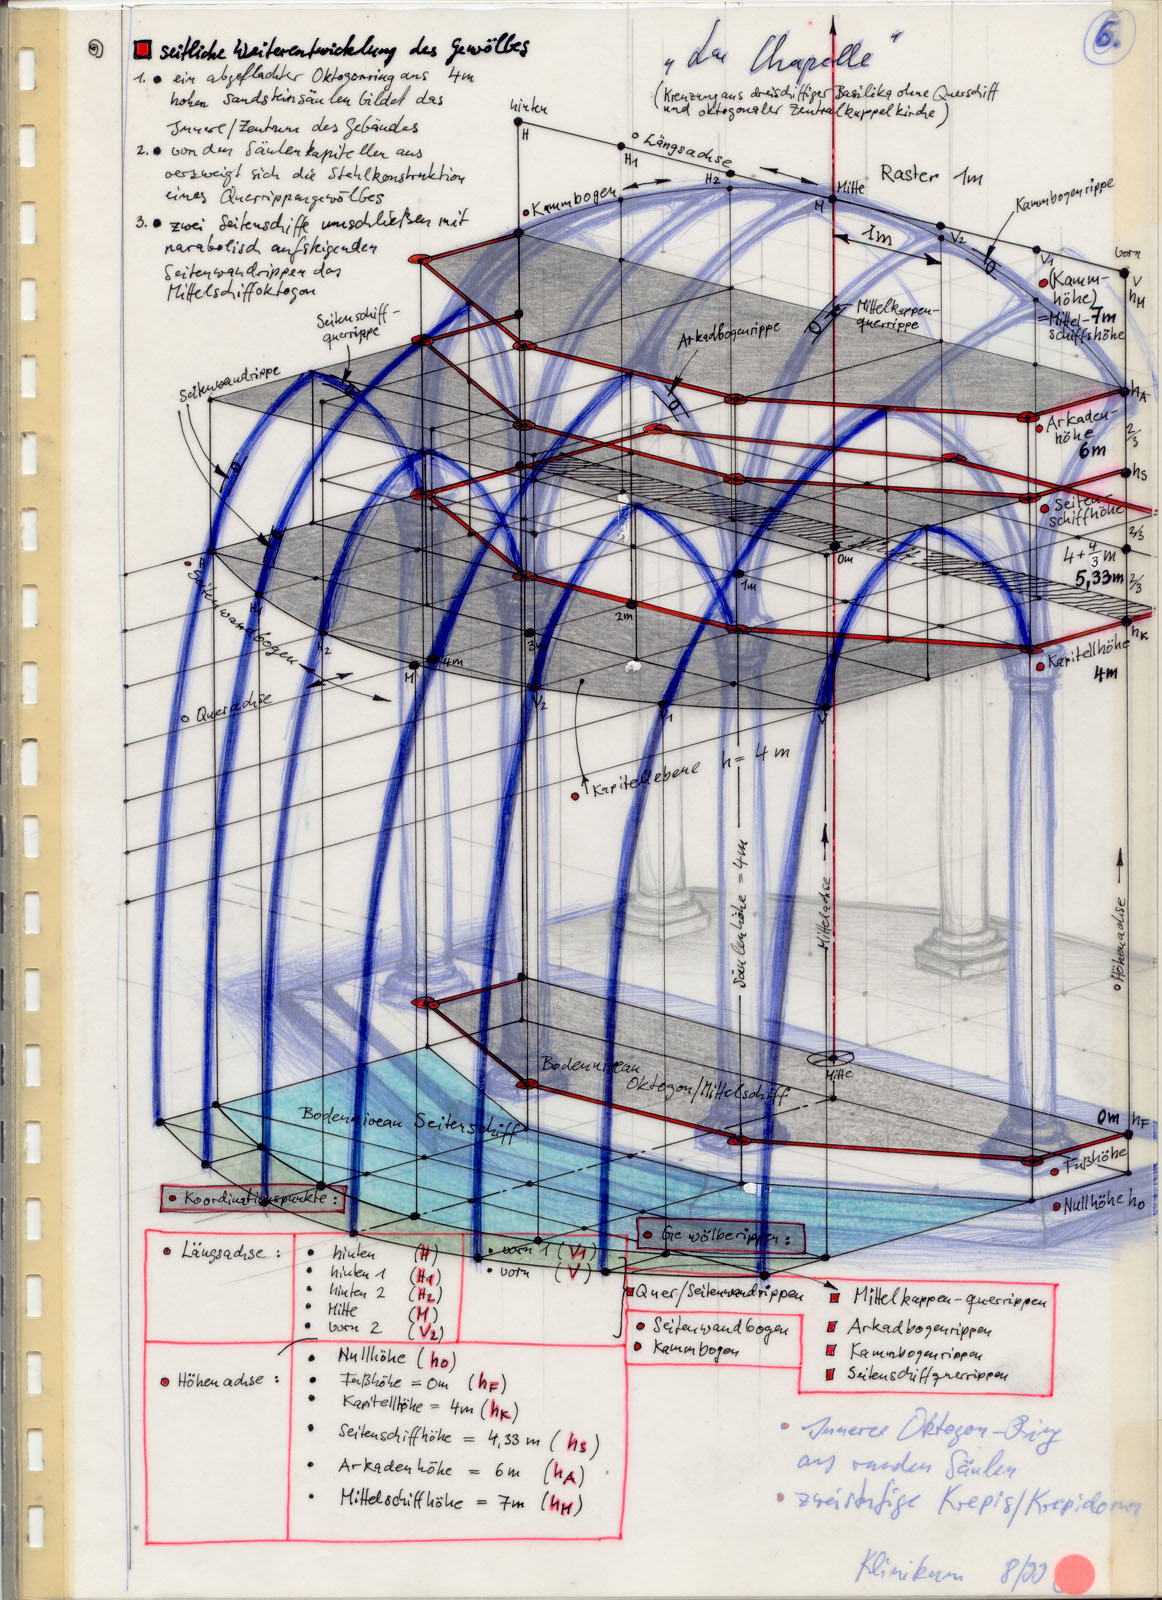 6.
seitliche Weiterentwicklung des Gewölbes
1. • ein abgeflachter Oktogonring aus 4m
hohen Sandsteinsäulen bildet das
Innere/Zentrum des Gebäudes
2. • von den Säulenkapitellen aus
verzweigt sich die Stahlkonstruktion
eines Querrippengewölbes
3. • zwei Seitenschiffe umschließen mit
parabolisch aufsteigenden
Seitenwandrippen das
Mittelschiffoktogon
„La Chapelle“
(Kreuzung aus dreischiffiger Basilika ohne Querschiff
und oktogonaler Zentralkuppelkirche)
hinten
H
H1
Längsachse
H2
Mitte
M
Raster 1m
Kammbogenrippe
Kammbogen
1m
V2
V1
vorn
V
hM
(Kamm-
höhe)
=Mittel-7m
schiffshöhe
Seitenschiff-
querrippe
Mittelkappen-
querrippe
Arkadbogenrippe
Seitenwandrippe
hA
Arkaden-
höhe
6m
2/3
hS
Seiten-
schiffhöhe
2/3
4+4/3m
5,33m
2/3
0m
1m
2m
3m
4m
hK
Kapitellhöhe
4m
Seitenwandbogen
H1
H2
M
V2
V1
V
Querachse
Kapitellebene h= 4m
Säulenhöhe = 4m
Mittelachse
Höhenachse
Bodenniveau
Oktogon/Mittelschiff
Mitte
Bodenniveau Seitenschiff
0m
hF
Fußhöhe
Nullhöhe h0
• Koordinationspunkte:
• Gewölberippen:
• Längsachse:
• hinten (H)
• hinten 1 (H1)
• hinten 2 (H2)
• Mitte (M)
• vorn 2 (V2)
• vorn 1 (V1)
• vorn (V)
Quer/Seitenwandrippen
• Seitenwandbogen
• Kammbogen
Mittelkappen-querrippen
Arkadbogenrippen
Kammbogenrippen
Seitenschiffquerrippen
• Höhenachse:
• Nullhöhe (h0)
• Fußhöhe = 0m (hF)
• Kapitellhöhe = 4m (hK)
• Seitenschiffhöhe = 4,33m (hS)
• Arkadenhöhe = 6m (hA)
• Mittelschiffhöhe = 7m (hM)
• Innerer Oktogon-Ring
aus runden Säulen
• zweistufige Krepis/Krepidoma
Klinikum 8/22